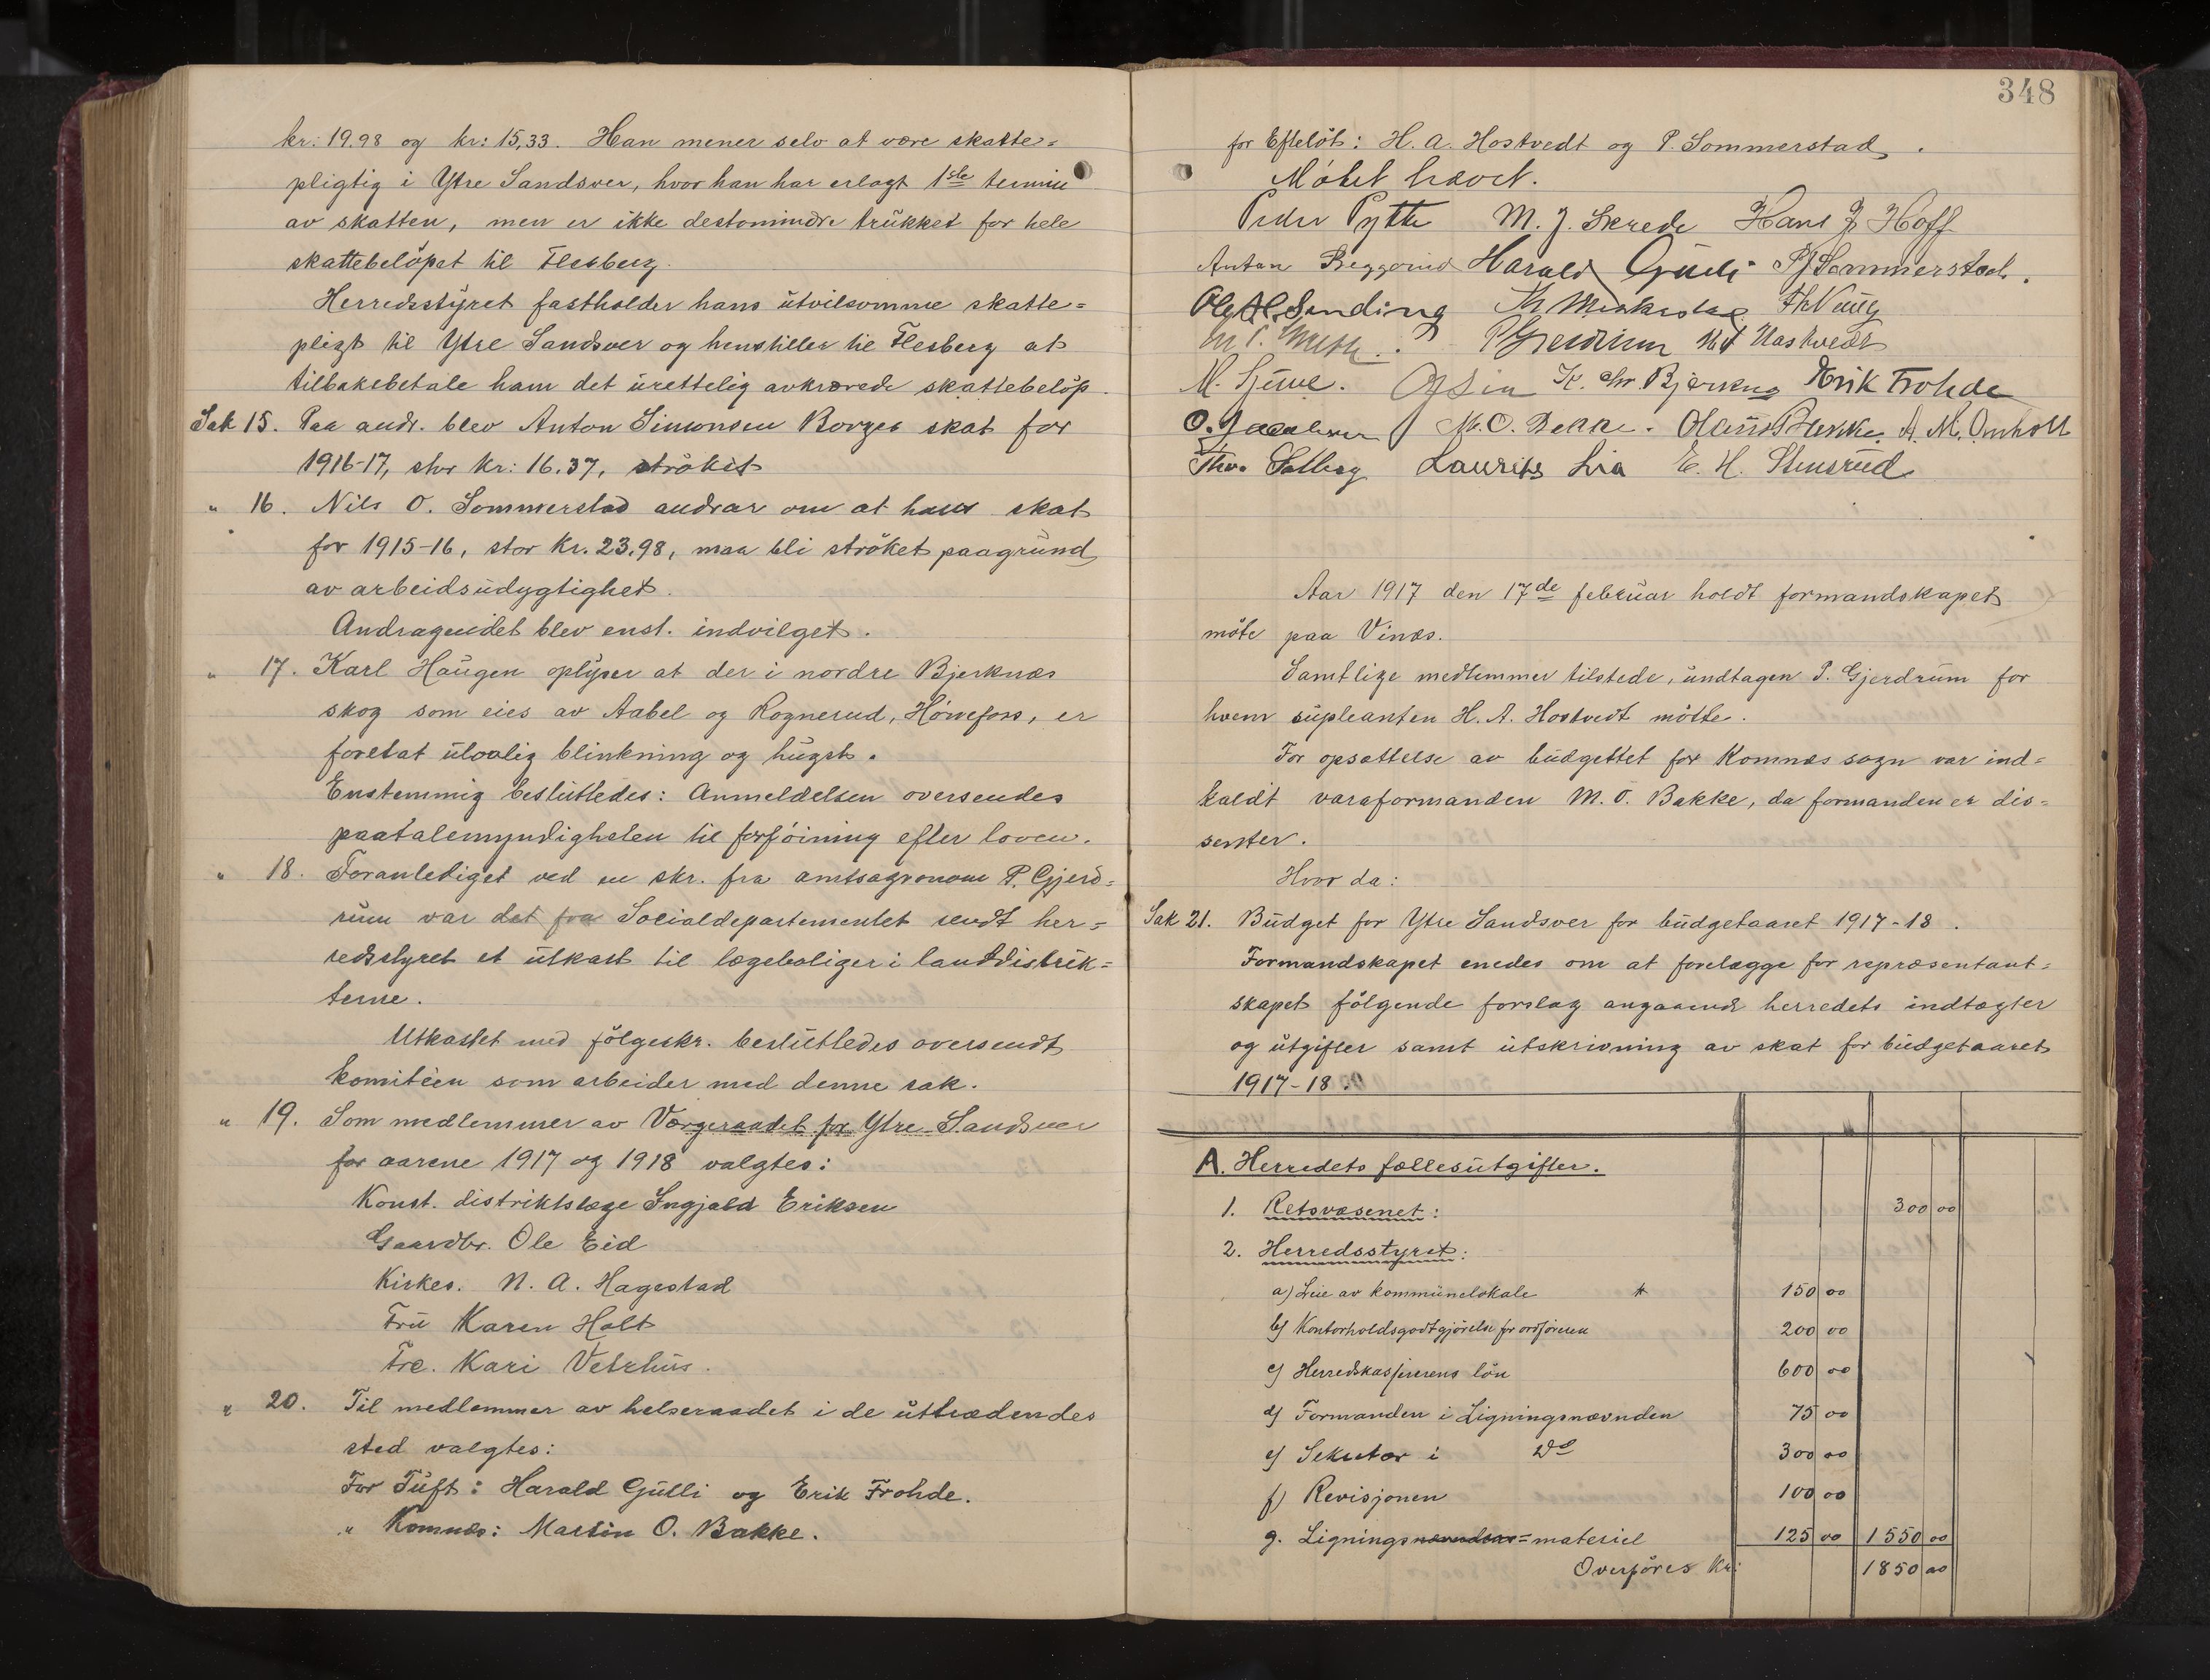 kr: 19.98 og kr: 15,33. Han mener selv at være skatte=
pligtig i Ytre Sandsver, hvor han har erlagt 1ste termin
av skatten, men er ikke destomindre trukket for hele
skattebelöpet til Flesberg.
Herredsstyret fastholder hans utvilsomme skatte=
pligt til Ytre Sandsver og henstiller til Flesberg at
tilbakebetale ham det urettelig avkrævede skattebelöp.
Sak 15. Paa andr. blev Anton Simonsen Borges skat for
1916-17, stor kr: 16.37, ströket
" 16. Nils O. Sommerstad andrar om at hans skat
for 1915-16, stor kr. 23,98, maa bli ströket paagrund
av arbeidsudygtighet.
Andragendet blev enst. indvilget.
" 17. Karl Haugen oplyser at der i nordre Bjerknæs
skog som eies av Aabel og Rognerud, Hönefoss, er
foretat ulovlig blinkning og hugst.
Enstemmig besluttedes: Anmeldelsen oversendes
paatalemyndigheten til forföining efter loven.
" 18. Foranlediget ved en skr. fra amtsagronom P. Gjerd=
rum var det fra Socialdepartementet sendt her=
redsstyret et utkast til lægeboliger i landdistrik=
terne.
Utkastet med fölgeskr. besluttedes oversendt
komitéen som arbeider med denne sak.
" 19. Som medlemmer av Værgeraadet for Ytre Sandsver
for aarene 1917 og 1918 valgtes:
Konst. distriktslæge Ingjald Eriksen
Gaardbr. Ole Eid
Kirkes. N. A. Hagestad
Fru Karen Holt
Frk. Kari Vetrhus.
" 20. Til medlemmer av helseraadet i de uttrædendes
sted valgtes:
For Tuft: Harald Gulli og Erik Frohde.
" Komnæs: Martin O. Bakke.
348
for Efteløt: H. A. Hostvedt og P. Sommerstad.
Mötet hævet.
Peder Pytte M. J. Skrede Hans J. Hoff
Anton Harald Gulli P. Sommerstad.
Ole H. Sanding Th. Vaug
P Gjerdrum H A Hostvedt
K. Chr. Bjerknes Erik Frohde
O. Jacobsen M. O. Bakke. Olaus Bakke. A. M. Omholt
Thv. Solberg Laurits Lia E. H. Stensrud
Aar 1917 den 17de februar holdt formandskapet
möte paa Vinæs.
Samtlige medlemmer tilstede, undtagen P. Gjerdrum for
hvem supleanten H. A. Hostvedt mötte.
For opsættelse av budgettet for Komnæs sogn var ind=
kaldt varaformanden M. O. Bakke, da formanden er dis=
senter.
Hvor da:
Sak 21. Budget for Ytre Sandsver for budgetaaret 1917-18.
Formandskapet enedes om at forelægge for repræsentant=
skapet fölgende forslag angaaende herredets indtægter
og utgifter samt utskrivning av skat for budgetaaret
1917-18.
A. Herredets fællesutgifter.
1. Retsvæsenet: 300 00
2. Herredsstyret:
a) Leie av kommunelokale 150 00
b) Kontorholdsgodtgjörelse for ordföreren 200 00
c) Herredskassererens lön 600 00
d) Formanden i Ligningsnævnden 75 00
e) Sekretær i do 300 00
f) Revisjonen 100 00
g. Lignings=materiel 125 00 1550 00
Overföres kr: 1850 00